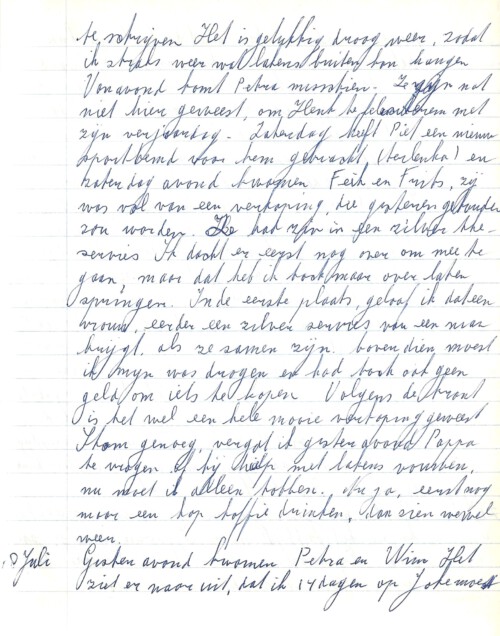 te schrijven Het is gelukkig droog weer, zodat
ik straks weer wat lakens buiten kan hangen
Vanavond komt Petra misschien. Ze zijn nog
niet hier geweest, om Henk te feliciteren met
zijn verjaardag. Zaterdag heeft Piet een nieuw
sporthemd voor hem gebracht, (terlenka) en
zaterdag avond kwamen Feik en Frits, zij
was vol van een verkoping, die gisteren gehouden
zou worden. Ze had zin in een zilver thee-
servies Ik dacht er eerst nog over om mee te
gaan, maar dat heb ik toch maar over laten
springen. In de eerste plaats, geloof ik dat een
vrouw, eerder een zilver servies van een man
krijgt. als ze samen zijn. bovendien moest
ik mijn was drogen en had toch ook geen
geld om iets te kopen Volgens de krant
is het wel een hele mooie verkoping geweest
Stom genoeg, vergat ik gisteravond Pappa
te vragen of hij hielp met lakens vouwen,
nu moet ik alleen tobben. Nu ja, eerst nog
maar een kop koffie drinken, dan zien we wel
weer.
Juli Gisteravond kwamen Petra en Wim Het
ziet er naar uit, dat ik 14 dagen op Joke moet